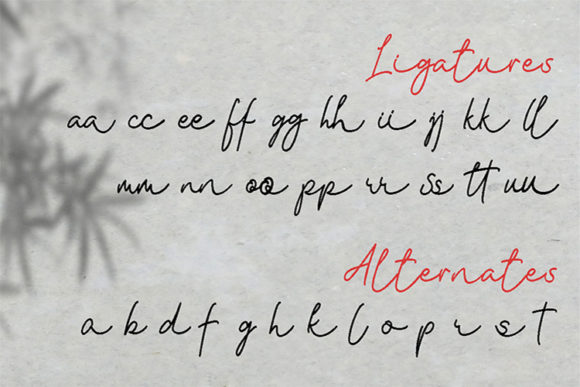 Ligatures
aa cc ee ff gg hh ii jj kk ll
mm nn oo pp rr ss tt uu
Alternates
a b d f g h k l o p r s t